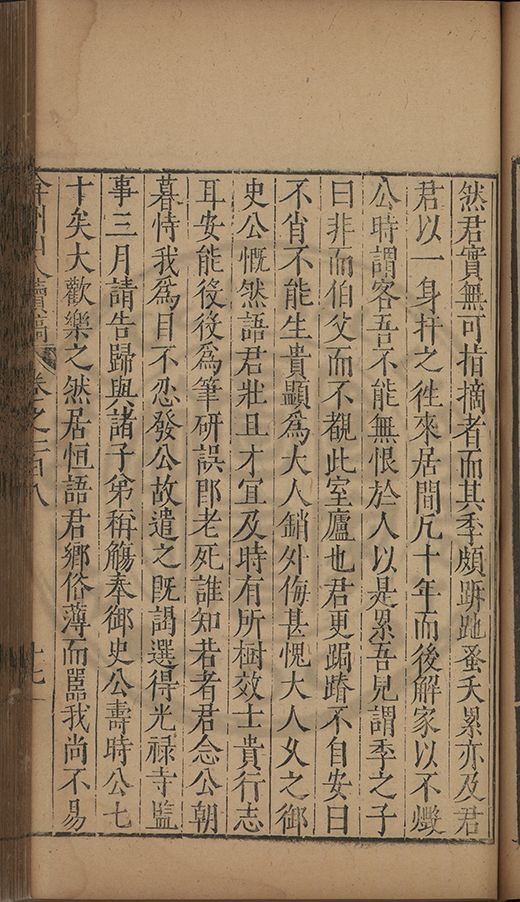 然君實無可指摘者而其季頗跅跎蚤夭累亦及君
君以一身扞之徃來居間凡十年而後解家以不燬
公時謂客吾不能無恨於人以是累吾兒謂季之子
曰非而伯父而不覩此室廬也君更跼蹐不自安曰
不肖不能生貴顯爲大人銷外侮甚愧大人乆之御
史公慨然語君壯且才宜及時有所樹效士貴行志
耳安能役役爲筆研誤郎老死誰知若者君念公朝
暮恃我爲目不忍發公故遣之既謁選得光禄寺監
事三月請告歸與諸子弟稱觴奉御史公壽時公七
十矣大歡樂之然居恒語君鄉俗薄而嚚我尚不易
弇州山人續稿 卷之一百八 十七